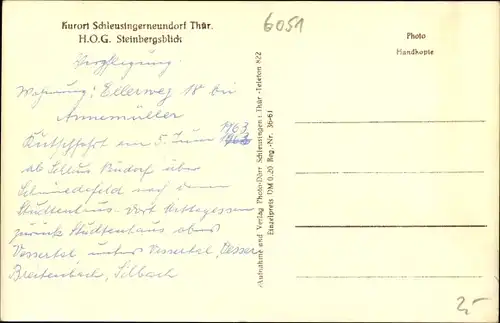 Kurort Schleusingerneundorf Thür.
H.O.G. Steinbergsblick
6051
Photo
Handkopie
Verpflegung.
Wohnung: Eilerweg 18 bei
Annemüller
Kutschfahrt am 5. Juni 1963
ab über
Schmiedefeld nach dem
Stutenhaus dort Mittagessen
zurück Stutenhaus über
Vessertal, unter Vessertal,
Breitenbach, Silbach
Aufnahme und Verlag Photo-Dörr Schleusingen i. Thür.-Telefon 822
Einzelpreis DM 0,20 Reg.-Nr. 36-61
2,-